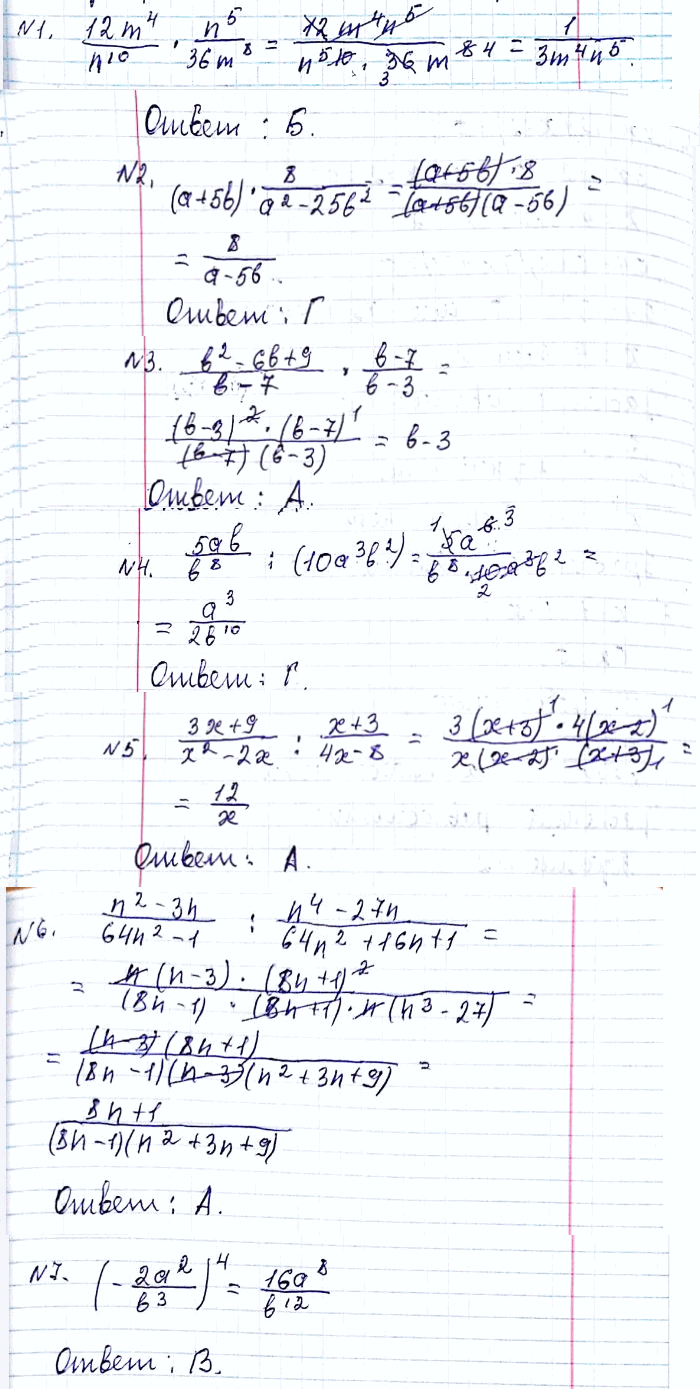 N1. 12m⁴/n¹⁰ · n⁵/36m⁸ = 12m⁴n⁵/n⁵ 10 · 3 36 m 8 4 = 1/3m⁴n⁵.
Ответ : Б.
N2. (a+5b) · 8/a²-25b² = (a+5b) · 8/(a+5b)(a-5b) =
= 8/a-5b.
Ответ : Г
N3. b²-6b+9/b-7 · b-7/b-3 =
(b-3)² · (b-7)¹/(b-7)(b-3) = b-3
Ответ : А.
N4. 5ab/b⁸ : (10a³b²) =
= a³/2b¹⁰
Ответ : Г.
N5. 3x+9/x²-2x : x+3/4x-8 = 3(x+3)¹ · 4(x-2)¹/x(x-2) · (x+3)₁ =
= 12/x
Ответ : А.
N6. n²-3n/64n²-1 : n⁴-27n/64n²+16n+1 =
= n(n-3) · (8n+1)²/(8n-1) · (8n+1) · n(n³-27) =
= (n-3)(8n+1)/(8n-1)(n-3)(n²+3n+9) =
8n+1/(8n-1)(n²+3n+9)
Ответ : А.
N7. (-2a²/b³)⁴ = 16a⁸/b¹²
Ответ : В.